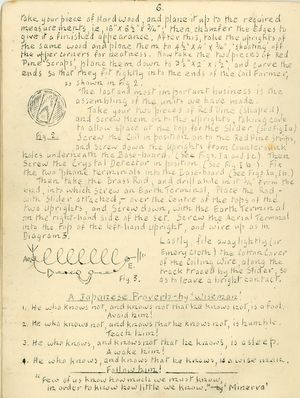 6.
Take your piece of Hardwood, and plane it up to the required
measurements i.e. 15" x 8½" x ¾"; then chamfer the edges to
give it a finished appearance, After this, take the uprights of
the same wood and plane them to 4½" x 4" x ½" shooting off
the upper corners for neatness. Now take the two pieces of Red
Pine Scraps, plane them down to 2½" x 2" x ½" and curve the
ends so that they fit tightly into the ends of the Coil Former,
as shown in Fig 2.
The last and most important business is the
assembling of the units we have made.
Take your two pieces of Red Pine (shaped)
and screw them on to the uprights, taking care
to allow space at the top for the Slider (see Fig 1a)
Screw the Coil in position onto the Red Pine Scraps
and screw down the Uprights from Countersunk
holes underneath the Base-board, (see Figs. 1a and 1c) Then
Screw the Crystal Detector in position (see Fig 1a) Fix
the two 'phone terminals into the Base-board (see Figs. 1a, 1b.)
Then take the Brass Rod, and drill a hole in ¼" from the
end, into which screw an Earth Terminal. Place the Rod -
with Slider attached - over the Centre of the Tops of the
Two uprights and Screw down, with the Earth Terminal
on the right-hand side of the set. Screw the Aerial Terminal
into the top of the left-hand Upright, and wire up as in
Diagram 3.
Fig 2.
Lastly, file away lightly (or
Emery cloth) the Cotton Cover
of the Coiling Wire, along the
track traced by the Slider, so
as to leave a bright contact.
E.
Fig. 3.
A Japanese Proverb - by 'Wiseman'.
1. He who knows not, and knows not that he knows not, is a fool.
Avoid him!
2. He who knows not, and knows that he knows not, is humble.
Teach him!
3. He who knows, and knows not that he knows, is asleep.
Awake him!
4. He who knows, and knows that he knows, is a wise man.
Follow him!
"Few of us know how much we must know,
in order to know how little we know." - by 'Minerva'